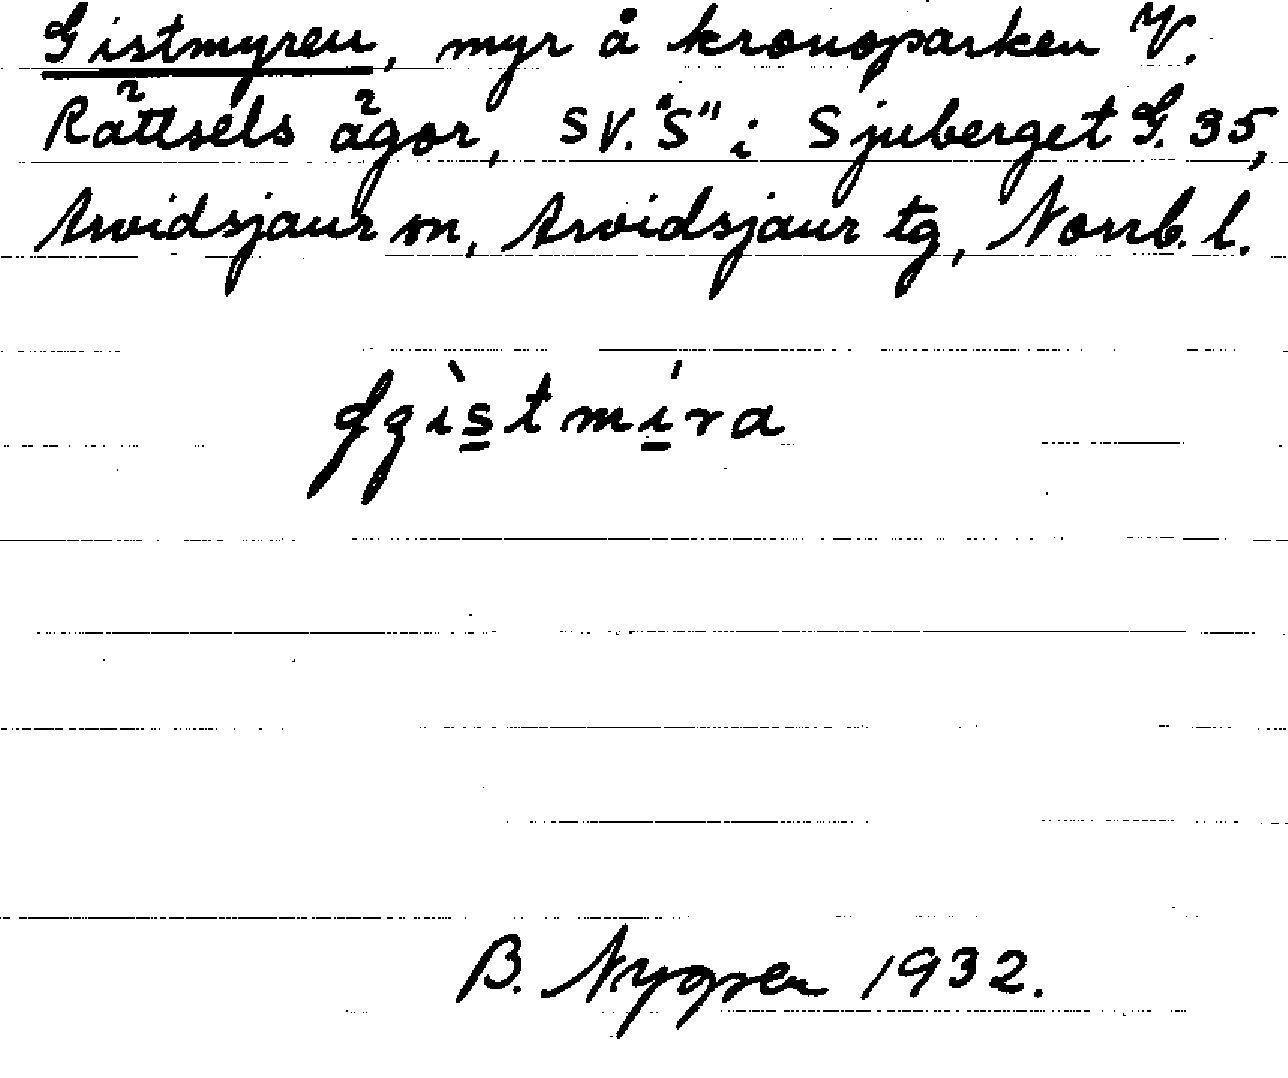 Gistmyren, myr å kronoparken V.
Rättsels ägor, SV. "S" i Sjuberget G. 35,
Arvidsjaur sn, Arvidsjaur tg, Norrb. l.
B. Nygren 1932.